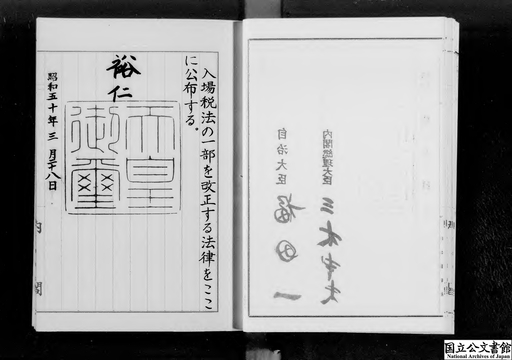 入場税法の一部を改正する法律をここ
に公布する。
裕仁
天皇
御璽
昭和五十年三月二十八日
内閣
内閣総理大臣 三木武夫
自治大臣 福田一
国立公文書館
National Archives of Japan